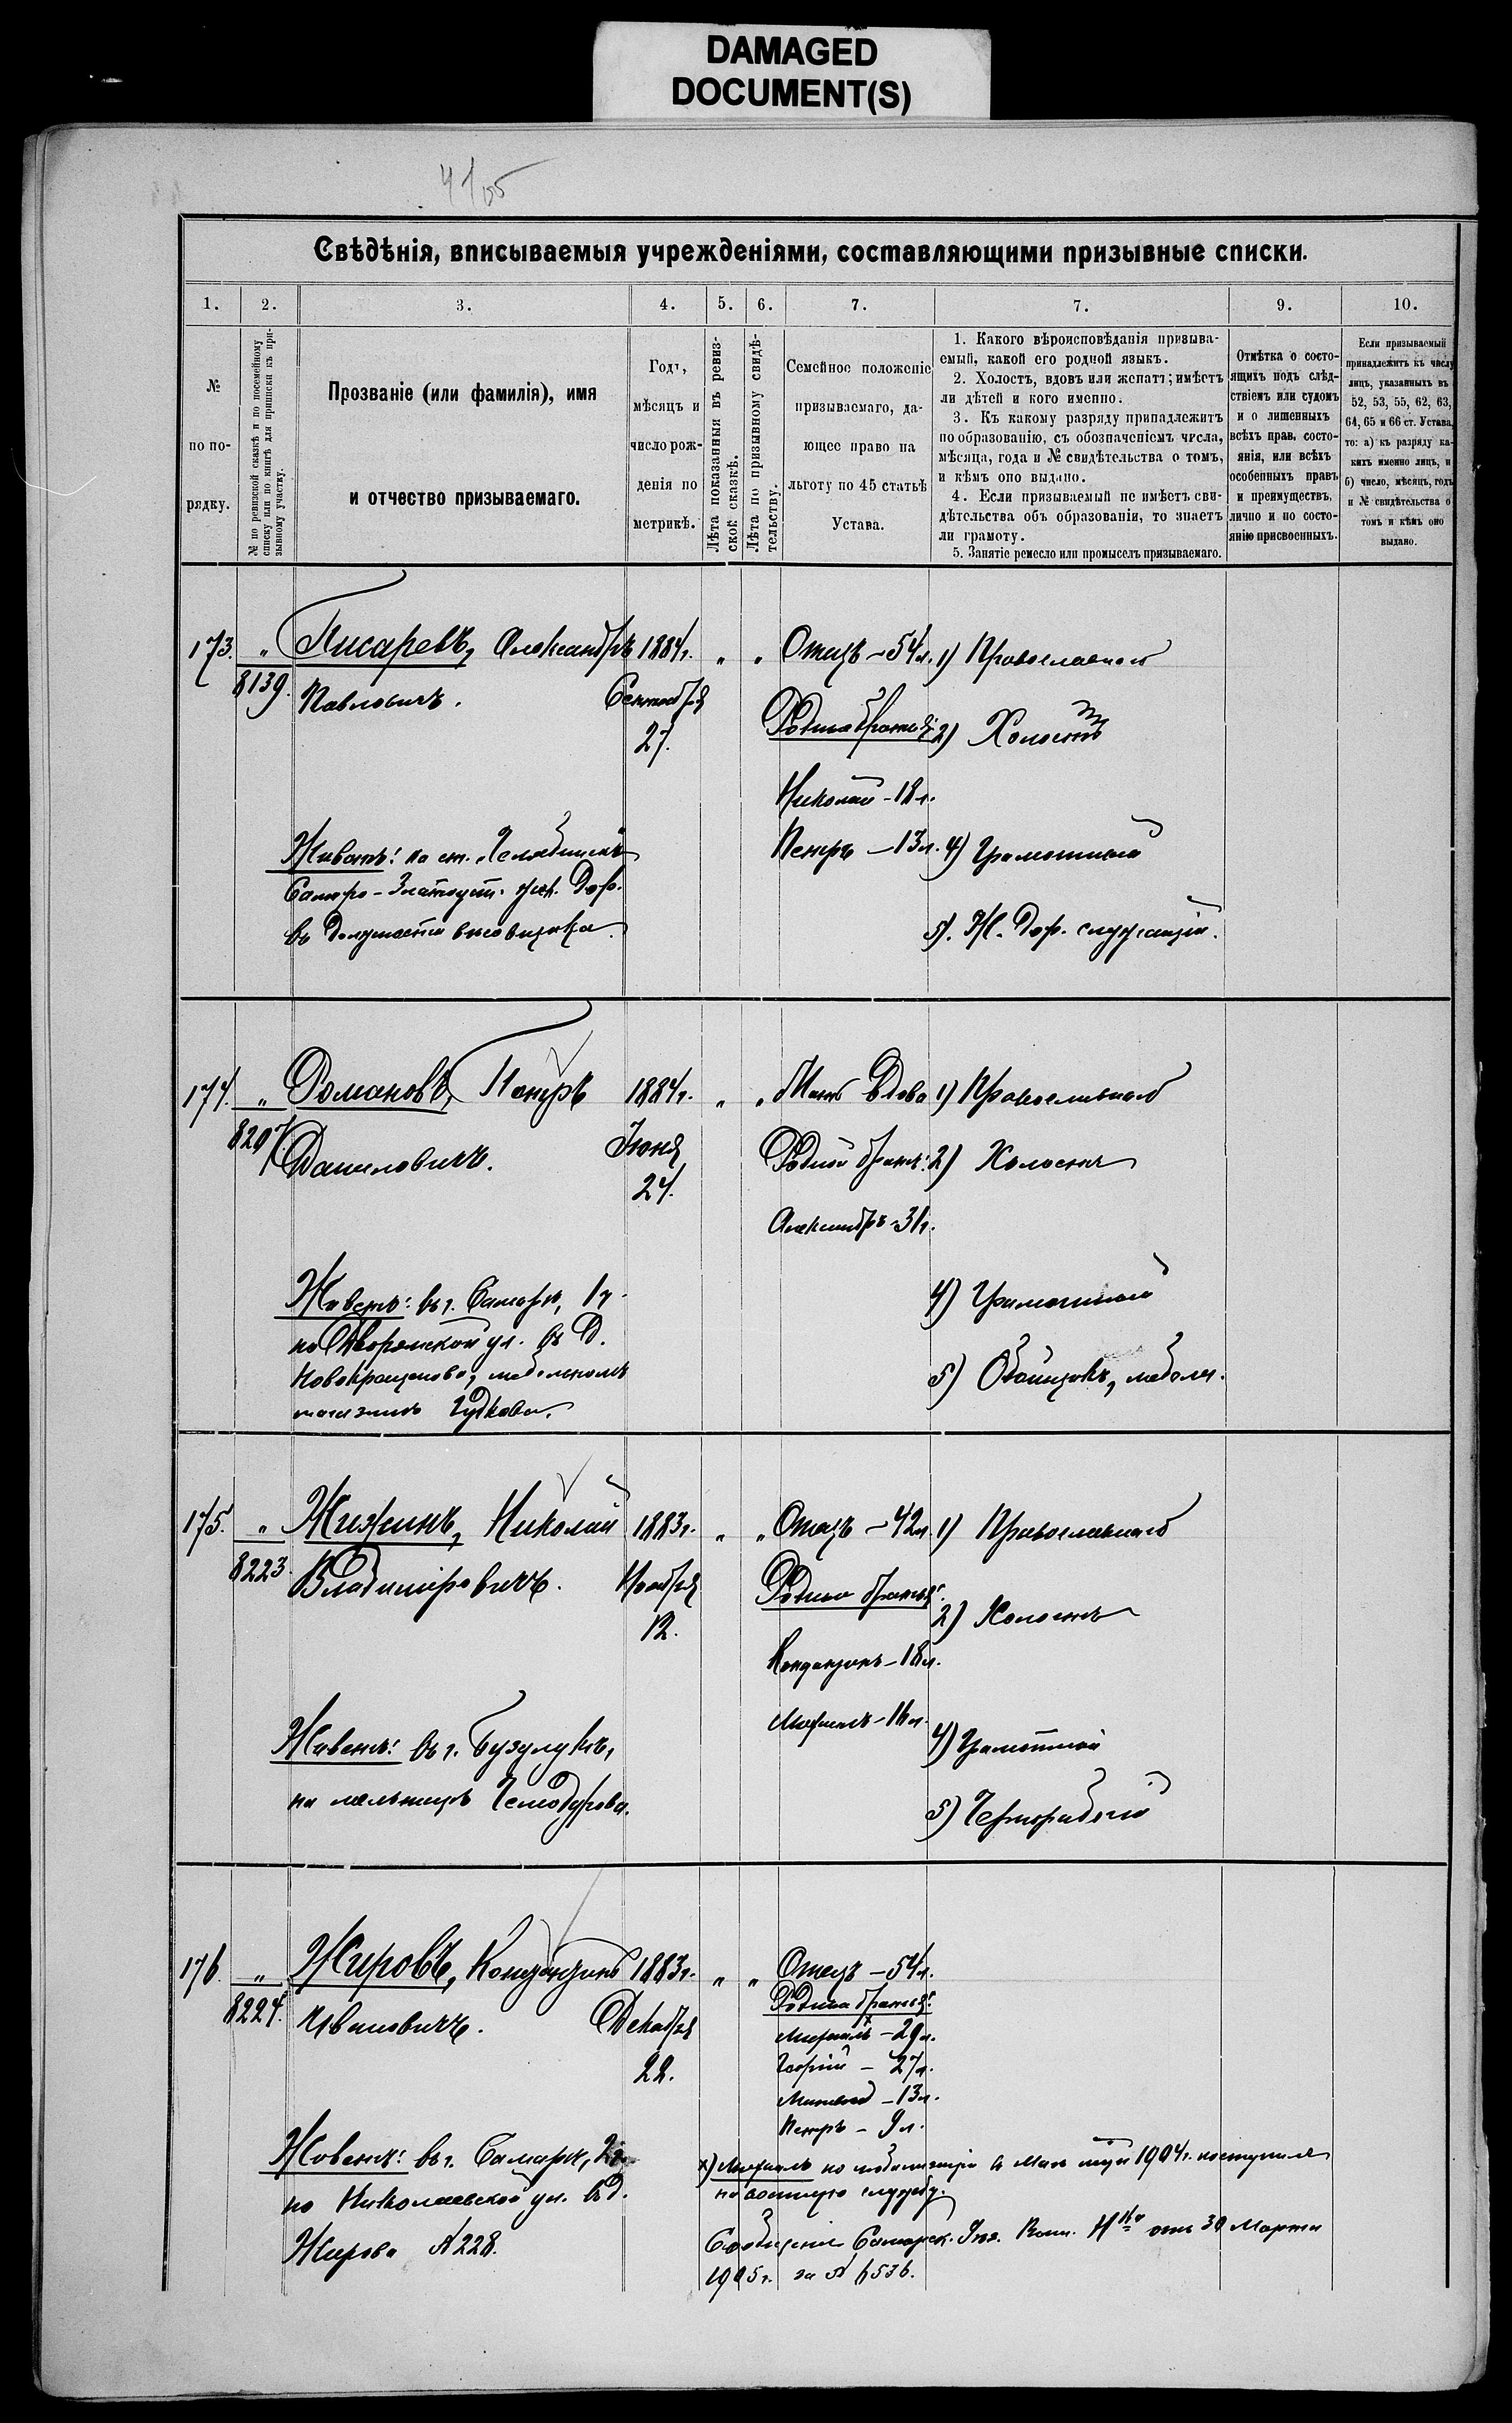 DAMAGED
DOCUMENT(S)
Свѣдѣнія, вписываемыя учрежденіями, составляющими призывные списки.
1. 2. 3. 4. 5. 6. 7. 7. 9. 10.
№ по порядку.
№ по ревизской сказкѣ и по посемейному
списку или по книгѣ для приписки къ при-
зывному участку.
Прозваніе (или фамилія), имя
и отчество призываемаго.
Годъ,
мѣсяцъ и
число рож-
денія по
метрикѣ.
Лѣта показанныя въ ревиз-
ской сказкѣ.
Лѣта по призывному свидѣ-
тельству.
Семейное положеніе
призываемаго, да-
ющее право на
льготу по 45 статьѣ
Устава.
1. Какого вѣроисповѣданія призыва-
емый, какой его родной языкъ.
2. Холостъ, вдовъ или женатъ; имѣетъ
ли дѣтей и кого именно.
3. Къ какому разряду принадлежитъ
по образованію, съ обозначеніемъ числа,
мѣсяца, года и № свидѣтельства о томъ,
и кѣмъ оно выдано.
4. Если призываемый не имѣетъ сви-
дѣтельства объ образованіи, то знаетъ
ли грамоту.
5. Занятіе ремесло или промыселъ призываемаго.
Отмѣтка о состо-
ящихъ подъ слѣд-
ствіемъ или судомъ
и о лишенныхъ
всѣхъ прав. состо-
янія, или всѣхъ
особенныхъ правъ
и преимуществъ,
лично и по состо-
янію присвоенныхъ.
Если призываемый
принадлежитъ къ числу
лицъ, указанныхъ въ
52, 53, 55, 62, 63,
64, 65 и 66 ст. Устава,
то: а) къ разряду ка-
кихъ именно лицъ, и
б) число, мѣсяцъ, годъ
и № свидѣтельства о
томъ и кѣмъ оно
выдано.
173. " Писаревъ, Александръ 1884г. " " Отецъ - 54л. 1) Православнаго
8139. Павловичъ. Сентября Родные братья: 2) Холостъ
27.
Николай - 18л.
Живетъ: на ст. „Челябинскъ" Петръ - 13л. 4) Грамотный
Самаро-Златоуст. жел. дор.
въ должности вѣсовщика. 5). Ж. дор. служащій.
174. " Романовъ, Петръ 1884г. " " Мать вдова 1) Православнаго
8207. Даниловичъ. Іюня Родной братъ: 2) Холостъ
24.
Александръ - 31г.
Живетъ: въ г. Самарѣ, 1ч. 4) Грамотный
по Дворянской ул. въ д.
Новокрещенова, мебельномъ 5) Обойщикъ, мебели.
магазинѣ Гудкова.
175. " Жижинъ, Николай 1883г. " " Отецъ - 42л. 1) Православнаго
8223. Владиміровичъ. Ноября Родные братья: 2) Холостъ
12.
- 18л.
Михаилъ - 16л.
Живетъ: въ г. Бузулукѣ, 4) Грамотный
на мельницѣ Чемодурова. 5) Чернорабочій
176. " Жировъ, 1883г. " " Отецъ - 54л.
8224. Ивановичъ. Декабря Родные братья:
22. Михаилъ x - 29л.
Георгій - 27л.
- 13л.
Петръ - 9л.
Живетъ: въ г. Самарѣ, 2ч. x) Михаилъ по мобилизаціи въ Маѣ 1904г. поступилъ
по Николаевской ул. въ д. на военную службу.
Жирова № 228. Сообщеніе Самарск. Уѣз. Воин. Н-ка отъ 30 Марта
1905г. за № 6536.